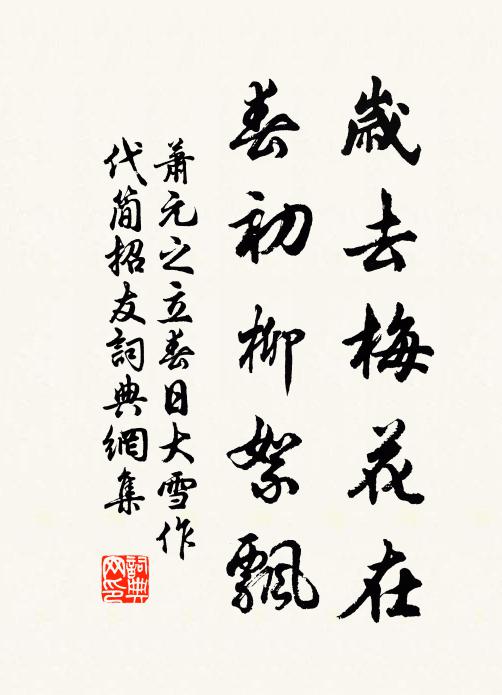 歲去梅花在
春初柳絮飄
蕭元之立春日大雪作
代簡招友詞典網集
詞典
网印